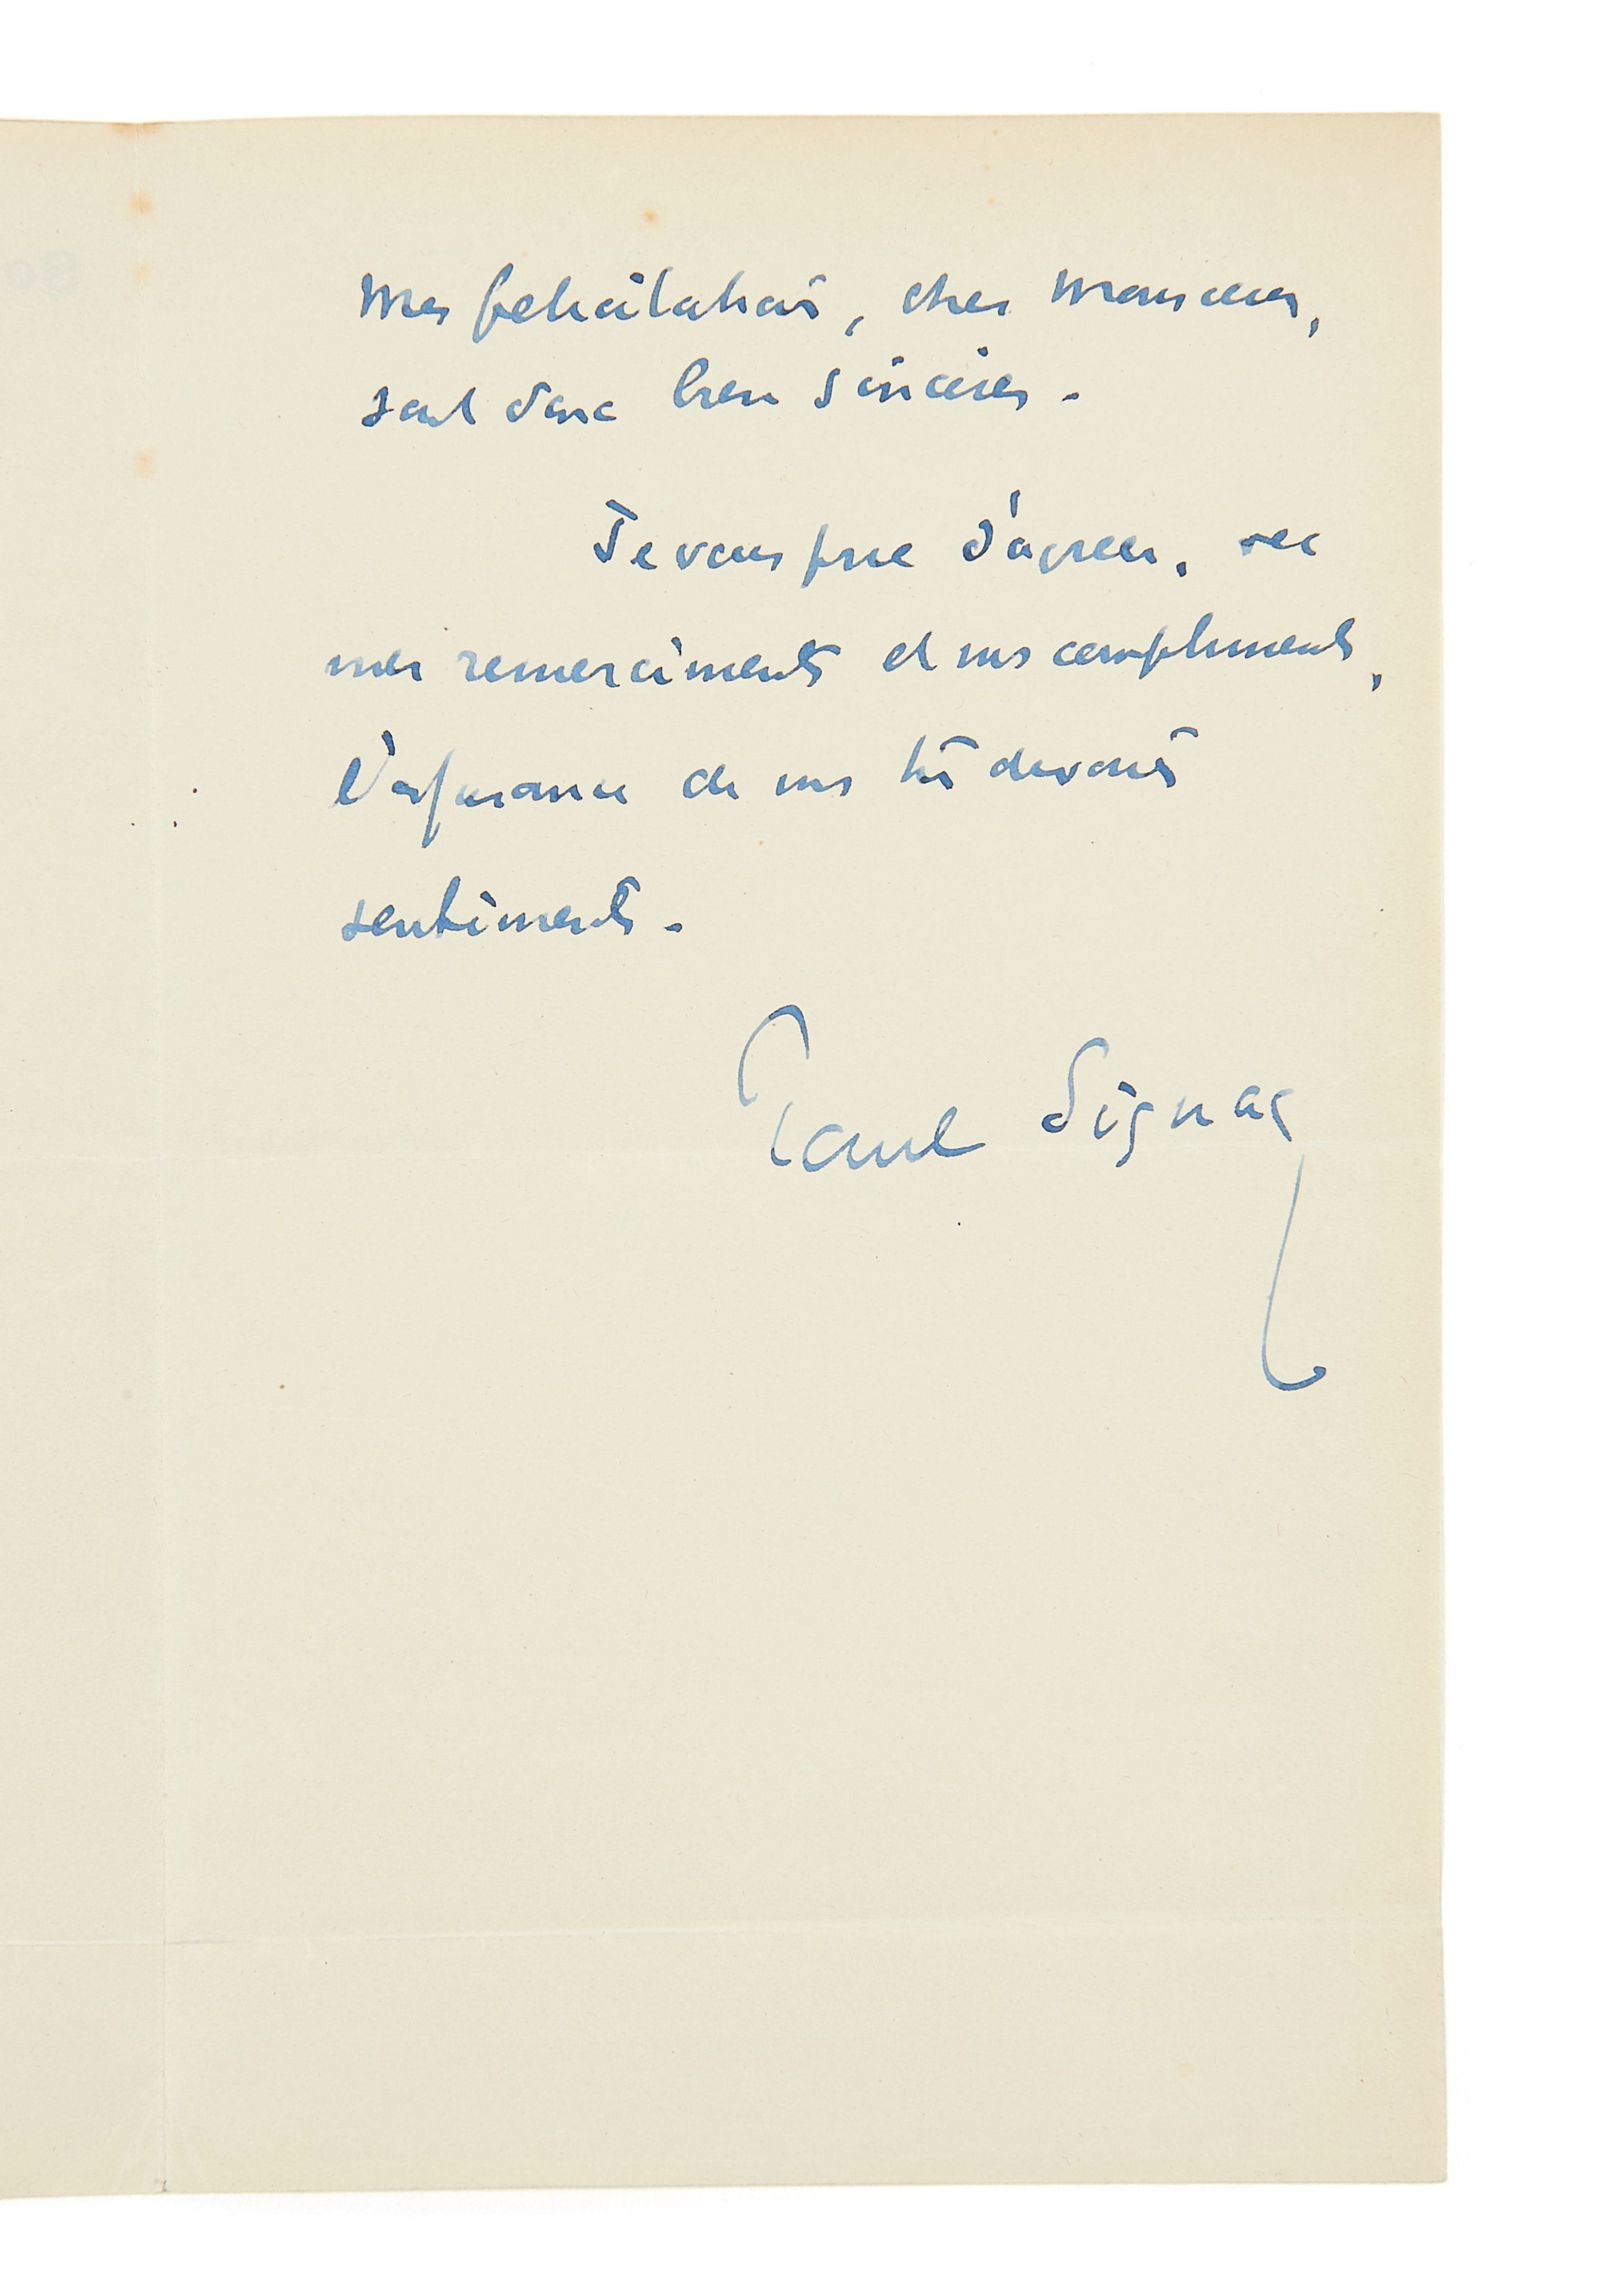 Mes félicitations, cher Monsieur,
sont donc bien sincères.
Je vous prie d'agréer, avec
mes remerciments et mes compliments,
l'assurance de mes très dévoués
sentiments.
Paul Signac